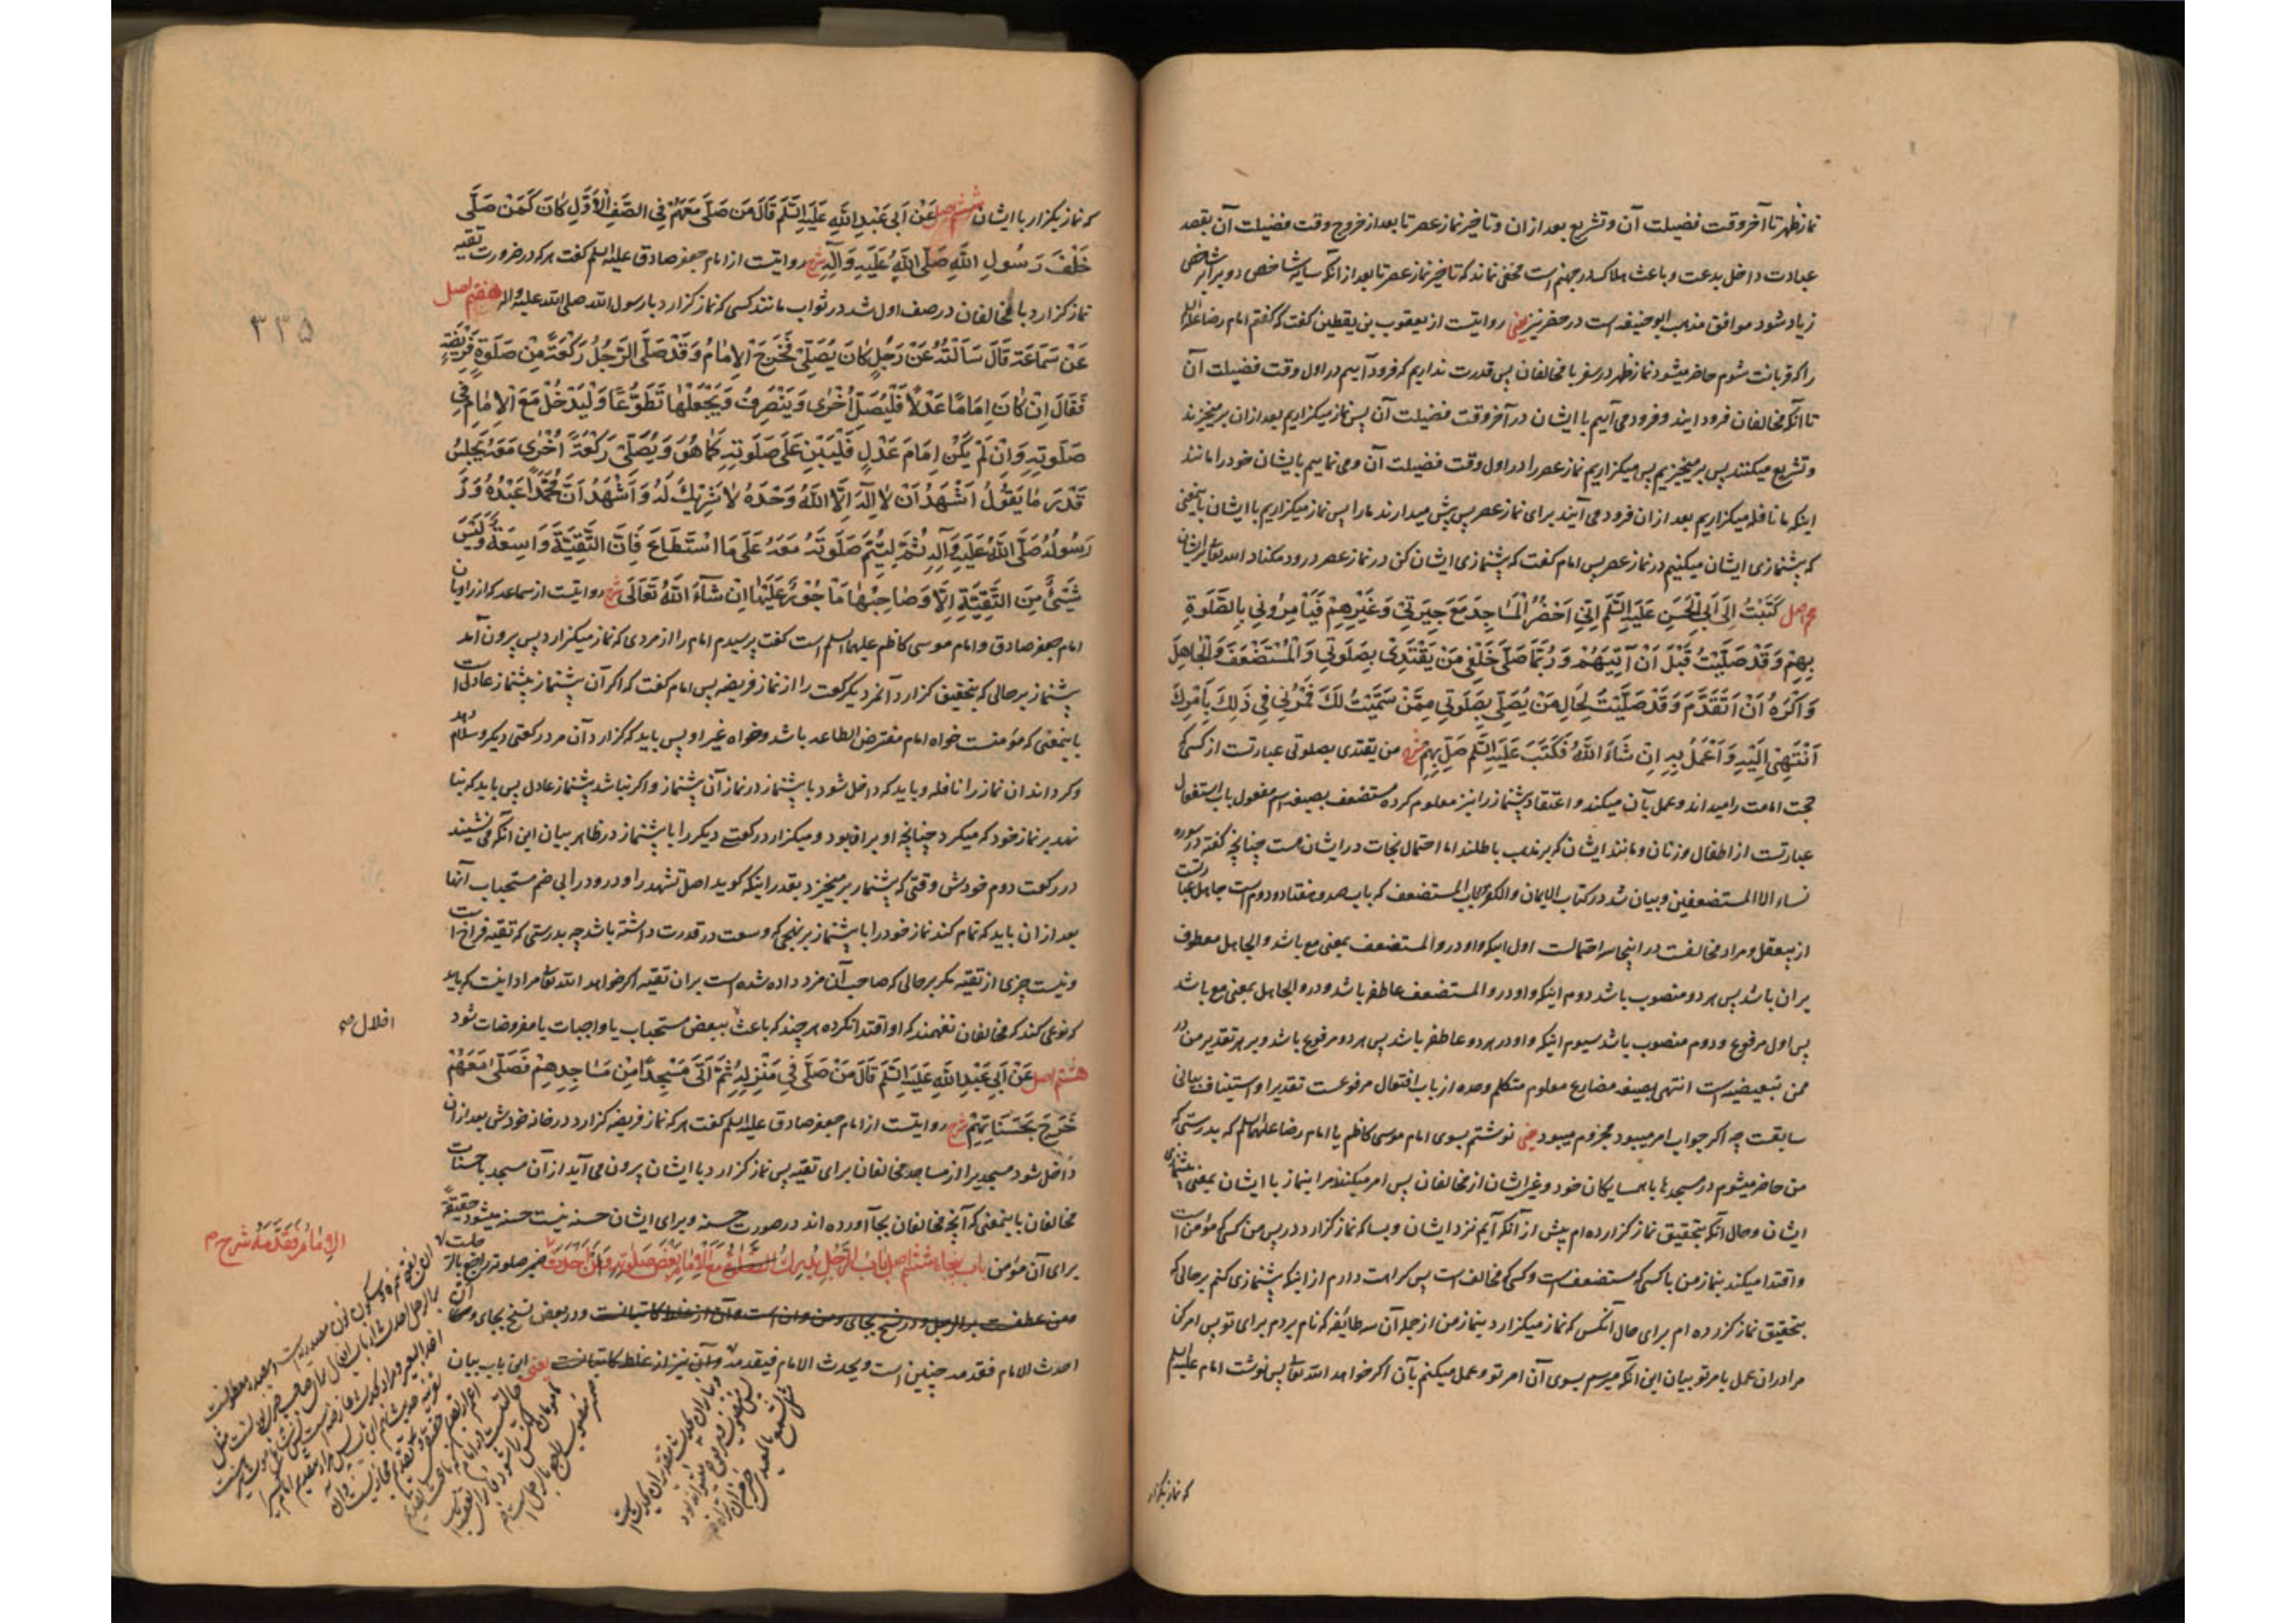 نماز ظهر تا آخر وقت فضیلت آن و تشریع بعد ازان و تاخیر نماز عصر تا بعد از خروج وقت فضیلت آن بقصد
عبادت داخل بدعت و باعث هلاک در جهنم است مخفی نماند که تاخیر نماز عصر تا بعد از آنکه سایه شاخص دو برابر شاخص
زیاد شود موافق مذهب ابو حنیفه است در حضر نیز یعنی روایتست از یعقوب بن یقطین گفت که گفتم امام رضا علیه السلم
را که قربانت شوم حاضر میشود نماز ظهر در سفر با مخالفان پس قدرت نداریم که فرود آییم در اول وقت فضیلت آن
تا آنکه مخالفان فرود ایند و فرود می آییم با ایشان در آخر وقت فضیلت آن پس نماز میکزاریم بعد ازان بر میخیزند
و تشریع میکنند پس بر میخیزیم پس میکزاریم نماز عصر را در اول وقت فضیلت آن و می نماییم بایشان خود را مانند
اینکه ما نافله میکزاریم بعد ازان فرود می آیند برای نماز عصر پس پیش میدارند ما را پس نماز میکزاریم با ایشان باینمعنی
که پیشنمازی ایشان میکنیم در نماز عصر پس امام گفت که پیشنمازی ایشان کن در نماز عصر درود مکناد الله تعالی بر ایشان
اصل کَتَبْتُ اِلَى اَبِی الْحَسَنِ عَلَیْهِ السَّلَم اِنِّی اَحْضُرُ الْمَسَاجِدَ مَعَ جِیرَتِی وَغَیْرِهِمْ فَیَأْمُرُونِی بِالصَّلٰوةِ
بِهِمْ وَقَدْ صَلَّیْتُ قَبْلَ اَنْ آتِیَهُمْ وَرُبَّمَا صَلَّى خَلْفِی مَنْ یَقْتَدِی بِصَلٰوتِی وَالْمُسْتَضْعَفُ وَالْجَاهِلُ
وَاَکْرَهُ اَنْ اَتَقَدَّمَ وَقَدْ صَلَّیْتُ لِحَالِ مَنْ یُصَلِّی بِصَلٰوتِی مِمَّنْ سَمَّیْتُ لَکَ فَمُرْنِی فِی ذٰلِکَ بِاَمْرِکَ
اَنْتَهِی اِلَیْهِ وَاَعْمَلُ بِهِ اِنْ شَاءَ اللّٰهُ فَکَتَبَ عَلَیْهِ السَّلَم صَلِّ بِهِمْ شرح من یقتدی بصلوتی عبارتست از کسی که
حجت امامت را میداند و عمل بآن میکند و اعتقاد پیشنماز را نیز معلوم کرده مستضعف بصیغه اسم مفعول باب استفعال
عبارتست از اطفال و زنان و مانند ایشان که بر مذهب باطلند اما احتمال نجات در ایشان هست چنانچه گفته در سوره
نساء الا المستضعفین و بیان شد در کتاب الایمان و الکفر در باب المستضعف که باب صد و هفتاد و دوم است جاهل عبارتست
از بیعقل و مراد مخالفست در اینجا سه احتمالست اول اینکه واو در و المستضعف بمعنی مع باشد و الجاهل معطوف
بران باشد پس هر دو منصوب باشد دوم اینکه واو در و المستضعف عاطفه باشد و در و الجاهل بمعنی مع باشد
پس اول مرفوع و دوم منصوب باشد سیوم اینکه واو در هر دو عاطفه باشد پس هر دو مرفوع باشد و بر هر تقدیر من در
ممن تبعیضیه است انتهی بصیغه مضارع معلوم متکلم وحده از باب افتعال مرفوعست تقدیرا و استیناف بیانی
سابقست چه اگر جواب امر میبود مجزوم میبود یعنی نوشتم بسوی امام موسی کاظم یا امام رضا علیهما السلم که بدرستی که
من حاضر میشوم در مسجد ها با همسایکان خود و غیر ایشان از مخالفان پس امر میکنند مرا بنماز با ایشان بمعنی پیشنمازی
ایشان و حال آنکه بتحقیق نماز کزارده ام پیش از آنکه آیم نزد ایشان و بسا که نماز کزارد در پس من کسی که مؤمن است
و اقتدا میکند بنماز من با کسی که مستضعف است و کسی که مخالف است پس کراهت دارم از اینکه پیشنمازی کنم بر حالی که
بتحقیق نماز کزارده ام برای حال آنکس که نماز میکزارد بنماز من از جمله آن سه طائفه که نام بردم برای تو پس امر کن
مرا دران عمل بامر تو بیان این آنکه میرسم بسوی آن امر تو و عمل میکنم بآن اگر خواهد الله تعالی پس نوشت امام علیه السلم
که نماز بکزار
که نماز بکزار با ایشان ششم اصل عَنْ اَبِی عَبْدِ اللّٰهِ عَلَیْهِ السَّلَم قَالَ مَنْ صَلَّى مَعَهُمْ فِی الصَّفِّ الْاَوَّلِ کَانَ کَمَنْ صَلَّى
خَلْفَ رَسُولِ اللّٰهِ صَلَّى اللّٰهُ عَلَیْهِ وَآلِهِ شرح روایتست از امام جعفر صادق علیه السلم گفت هر که در ضرورت تقیه
نماز کزارد با مخالفان در صف اول شد در ثواب مانند کسی که نماز کزارد با رسول الله صلی الله علیه و اله هفتم اصل
۳۳۵
عَنْ سَمَاعَةَ قَالَ سَاَلْتُهُ عَنْ رَجُلٍ کَانَ یُصَلِّی فَخَرَجَ الْاِمَامُ وَقَدْ صَلَّى الرَّجُلُ رَکْعَةً مِنْ صَلٰوةٍ فَرِیضَةٍ
فَقَالَ اِنْ کَانَ اِمَامًا عَدْلًا فَلْیُصَلِّ اُخْرٰى وَیَنْصَرِفُ وَیَجْعَلْهَا تَطَوُّعًا وَلْیَدْخُلْ مَعَ الْاِمَامِ فِی
صَلٰوتِهِ وَاِنْ لَمْ یَکُنْ اِمَامَ عَدْلٍ فَلْیَبْنِ عَلَى صَلٰوتِهِ کَمَا هُوَ وَیُصَلِّی رَکْعَةً اُخْرٰى مَعَهُ یَجْلِسُ
قَدْرَ مَا یَقُولُ اَشْهَدُ اَنْ لَا اِلٰهَ اِلَّا اللّٰهُ وَحْدَهُ لَا شَرِیْکَ لَهُ وَاَشْهَدُ اَنَّ مُحَمَّدًا عَبْدُهُ وَرَ
رَسُولُهُ صَلَّى اللّٰهُ عَلَیْهِ وَآلِهِ ثُمَّ لِیُتِمَّ صَلٰوتَهُ مَعَهُ عَلَى مَا اسْتَطَاعَ فَاِنَّ التَّقِیَّةَ وَاسِعَةٌ وَلَیْسَ
شَیْئٌ مِنَ التَّقِیَّةِ اِلَّا وَصَاحِبُهَا مَاْجُوْرٌ عَلَیْهَا اِنْ شَاءَ اللّٰهُ تَعَالَى شرح روایتست از سماعه که از راویان
امام جعفر صادق و امام موسی کاظم علیهما السلم است گفت پرسیدم امام را از مردی که نماز میکزارد پس بیرون آمد
پیشنماز بر حالی که بتحقیق کزارد آنمرد یک رکعت را از نماز فریضه پس امام گفت که اگر آن پیشنماز پیشنماز عادلی است
باینمعنی که مؤمنست خواه امام مفترض الطاعه باشد و خواه غیر او پس باید که کزارد آن مرد رکعتی دیگر و سلام دهد
و کرداند ان نماز را نافله و باید که داخل شود با پیشنماز در نماز آن پیشنماز و اگر نباشد پیشنماز عادل پس باید که بنا
نهد بر نماز خود که میکرد چنانچه او بران بود و میکزارد رکعت دیگر را با پیشنماز در ظاهر بیان این آنکه می نشیند
در رکعت دوم خودش وقتی که پیشنماز بر میخیزد بقدر اینکه گوید اصل تشهد را و درود را بی ضم مستحبات آنها
بعد ازان باید که تمام کند نماز خود را با پیشنماز بر نهجی که وسعت در قدرت داشته باشد چه بدرستی که تقیه فراخ است
و نیست چیزی از تقیه مگر بر حالی که صاحب آن مزد داده شده است بران تقیه اگر خواهد الله تعالی مراد اینست که باید
که نوعی کند که مخالفان نفهمند که او اقتدا نکرده هر چند که باعث ببعض مستحبات یا واجبات یا مفروضات شود
اخلال صح
هشتم اصل عَنْ اَبِی عَبْدِ اللّٰهِ عَلَیْهِ السَّلَم قَالَ مَنْ صَلَّى فِی مَنْزِلِهِ ثُمَّ اَتَى مَسْجِدًا مِنْ مَسَاجِدِهِمْ فَصَلَّى مَعَهُمْ
خَرَجَ بِحَسَنَاتِهِمْ شرح روایتست از امام جعفر صادق علیه السلم گفت هر که نماز فریضه کزارد در خانه خودش بعد ازان
داخل شود مسجدیرا از مساجد مخالفان برای تقیه پس نماز کزارد با ایشان بیرون می آید از آن مسجد با حسنات
مخالفان باینمعنی که آنچه مخالفان بجا آورده اند در صورت حسنه و برای ایشان حسنه نیست حسنه میشود حقیقة
برای آن مؤمن باب پنجاه ششم اصل باب الرَّجُلِ یُدْرِکُ مَعَ الْاِمَامِ بَعْضَ صَلٰوتِهِ ضمیر صلوته راجع بالر
الاِمَامُ فَقَدَّمَهُ شرح م
ومن عطفست بر الرجل و در نسخ بجای ومن وان است وآن از غلط کاتبانست و در بعض نسخ بجای
احدث الامام فقدمه چنین است ویحدث الامام فیقدمه وآن نیز از غلط کاتبانست یعنی این باب بیان